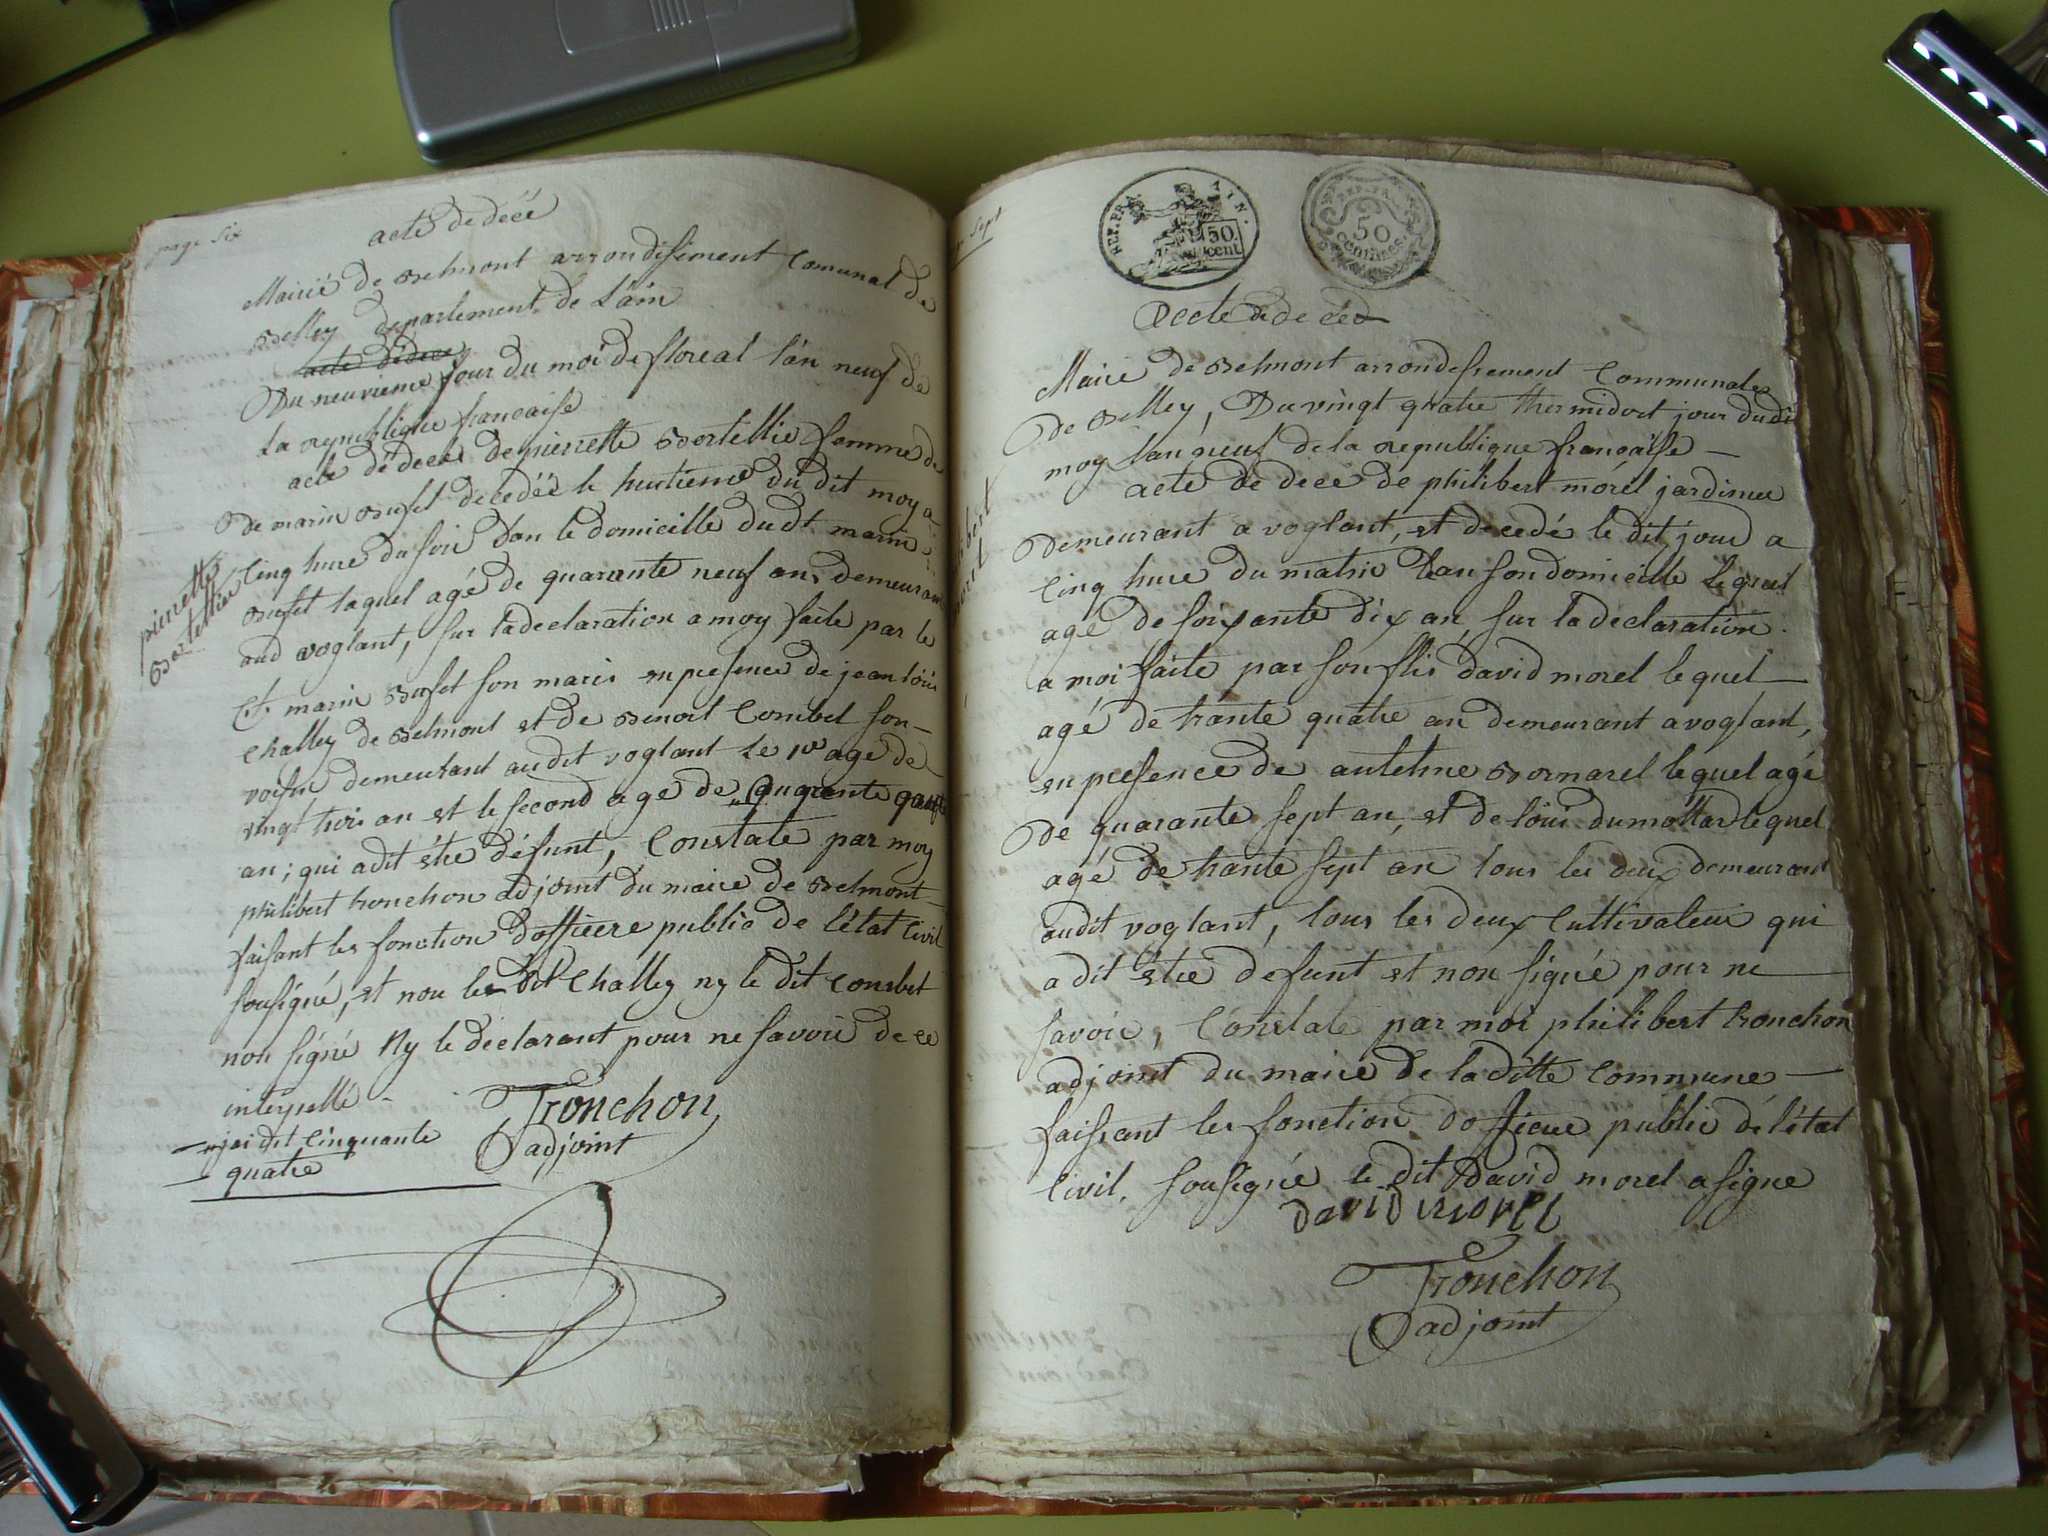 page six
acte de décé
Mairié de Belmont arrondisement Comunal de
Belley département de Láin
acte dédece
Du neuvieme jour du moi de floreal l'an neuf de
la republique francaise
acte dé décés de pierrette Bortellié famme de
De marin Bufet decedéé le huitieme du dit moy a
Cinq hure du soir dan le domicille dudt marin
Bufet laquel agé de quarante neuf an, demeurant
aud voglant, sur la declaration a moy faite par le
Ct marin Bufet son maris en presence de jean loüis
Challey de Belmont et de Benoit Combet son
voisin demeurant audit voglant Le 1er age de
vingt trois an et le second age de quarante quatre
an; qui a dit étre défunt, Constate par moy
philibert tronchon adjoint du maire de Belmont
faisant les fonction d'officere publiò de létat Civil
sousigné, et non le dit Challey ny le dit Combet
non signé Ny le déclarant pour ne savoir de ce
interpellé
jai dit Cinquante
quatre
Tronchon
adjoint
pierrette
Bortellier
sept
REP. FRA. AIN.
50.
cent
REP. FRA.
50
centimes
Acte de décéd
Mairié de Belmont arrondissement Communale
de Belley, Du vingt quatre thermidort jour dudi
moy l'an neuf de la republique française
acte de décé de philibert morel jardinier
Demeurant a voglant, et decedé le dit jour a
Cinq hure du matin dan son domicille Lequel
agé de soixante dix an, sur la declaration
a moi faite par son flis david morel lequel
agé de trante quatre an demeurant a voglant,
en presence de antelme Bornarel lequel agé
de quarante sept an, et de loüis dumollar lequel
agé de trante sept an tous les deux demeurant
audit voglant, tous les deux Cultivateur qui
a dit étre defunt et non signé pour ne
savoir, Constate par moi philibert tronchon
adjoint du maire de la ditte Commune
faissant les fonction dofficier public dé l'état
Civil, sousigné le dit David morel a signe
david morel
Tronchon
adjoint